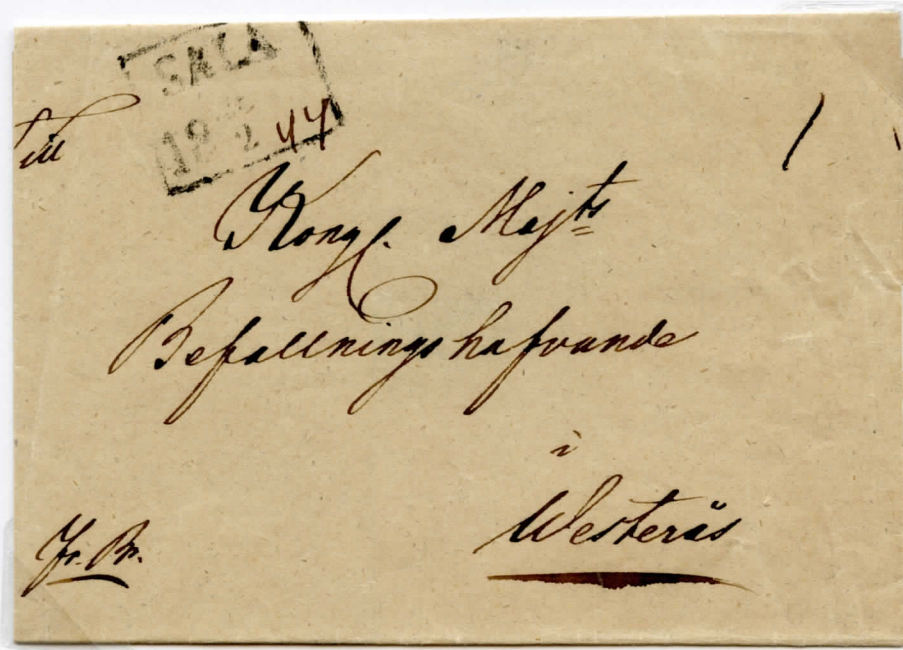 SALA
12 2 44
Till
Kongl. Majts
Befallningshafvande
i
Westerås
Fr. Br.